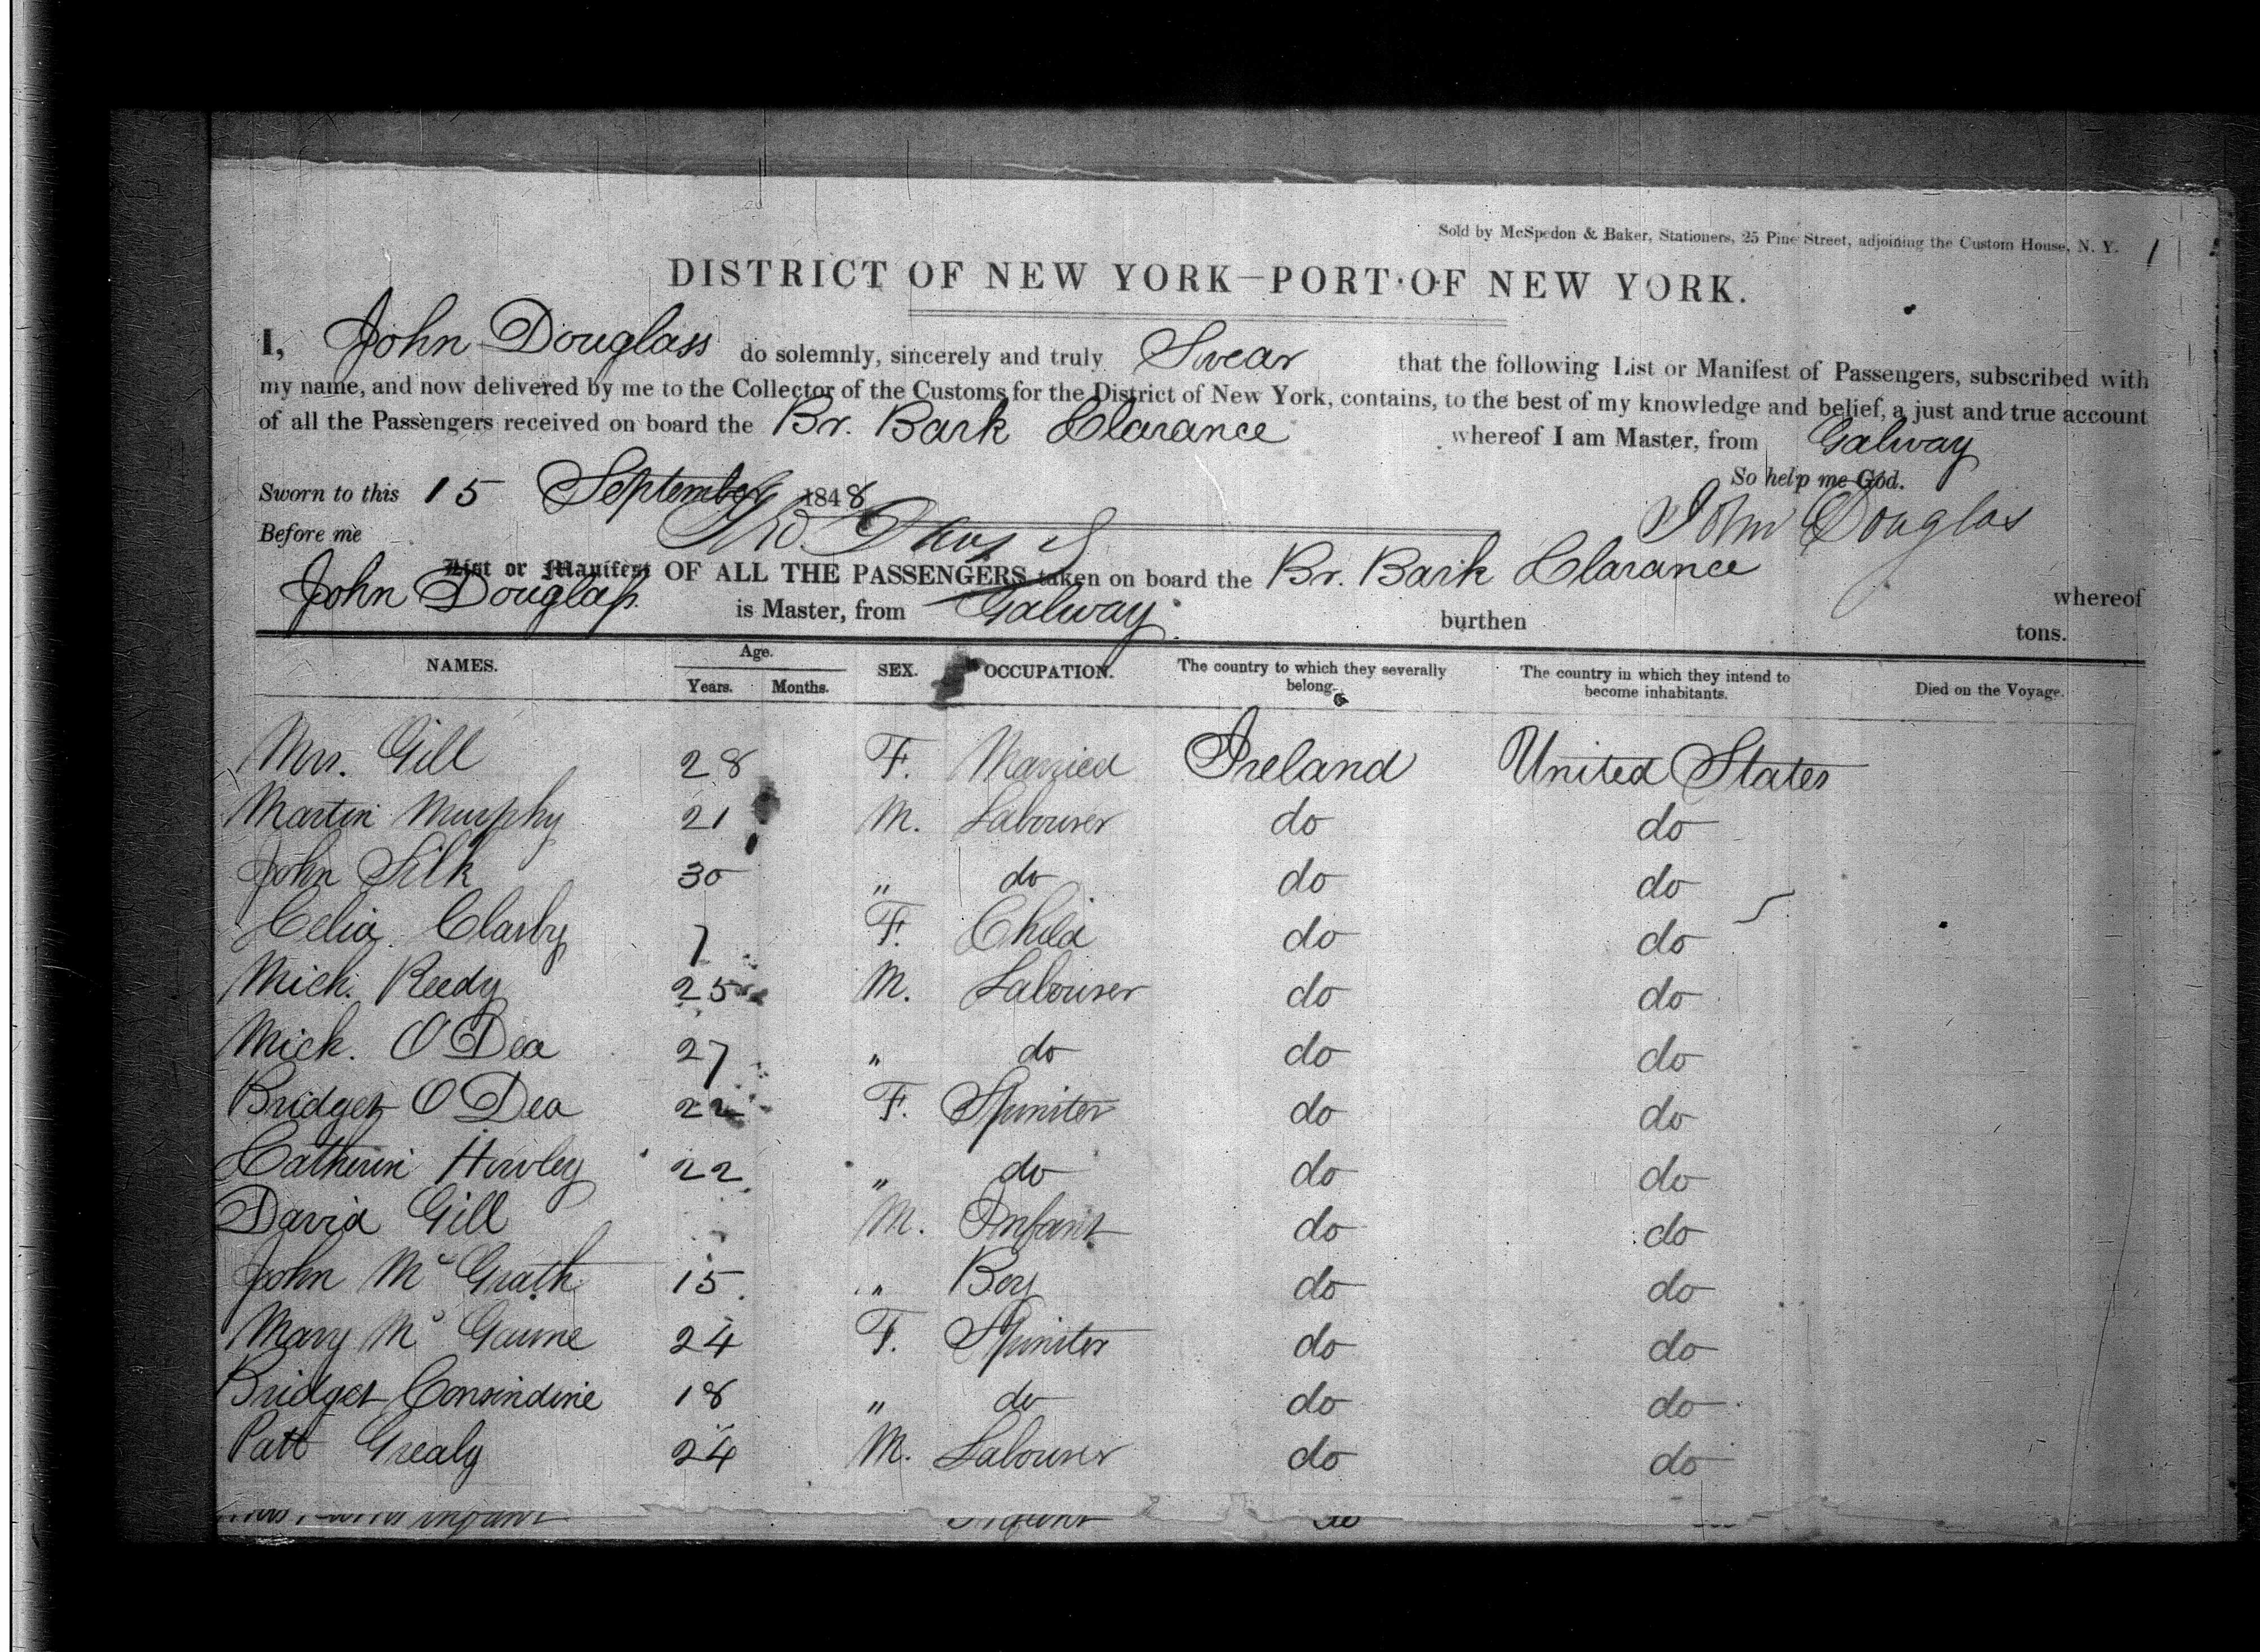 Sold by McSpedon & Baker, Stationers, 25 Pine Street, adjoining the Custom House, N. Y. 1
DISTRICT OF NEW YORK—PORT OF NEW YORK.
I, John Douglass do solemnly, sincerely and truly Swear that the following List or Manifest of Passengers, subscribed with
my name, and now delivered by me to the Collector of the Customs for the District of New York, contains, to the best of my knowledge and belief, a just and true account
of all the Passengers received on board the Br. Bark Clarance whereof I am Master, from Galway
So help me God.
Sworn to this 15 September 1848
John Douglas
Before me
List or Manifest OF ALL THE PASSENGERS taken on board the Br. Bark Clarance whereof
John Douglass is Master, from Galway burthen tons.
NAMES. Age. Years. Months. SEX. OCCUPATION. The country to which they severally belong. The country in which they intend to become inhabitants. Died on the Voyage.
Mrs. Gill 28 F. Married Ireland United States
Martin Murphy 21 M. Labourer do do
John Silk 30 " do do do
Celia Clasby 7 F. Child do do
Mich. Reedy 25 M. Labourer do do
Mich. O Dea 27 " do do do
Bridget O Dea 22 F. Spinster do do
Catherin Howley 22 " do do do
David Gill M. Infant do do
John Mc Grath 15 " Boy do do
Mary Mc 24 F. Spinster do do
Bridget Considine 18 " do do do
Patt Grealy 24 M. Labourer do do
infant Infant do